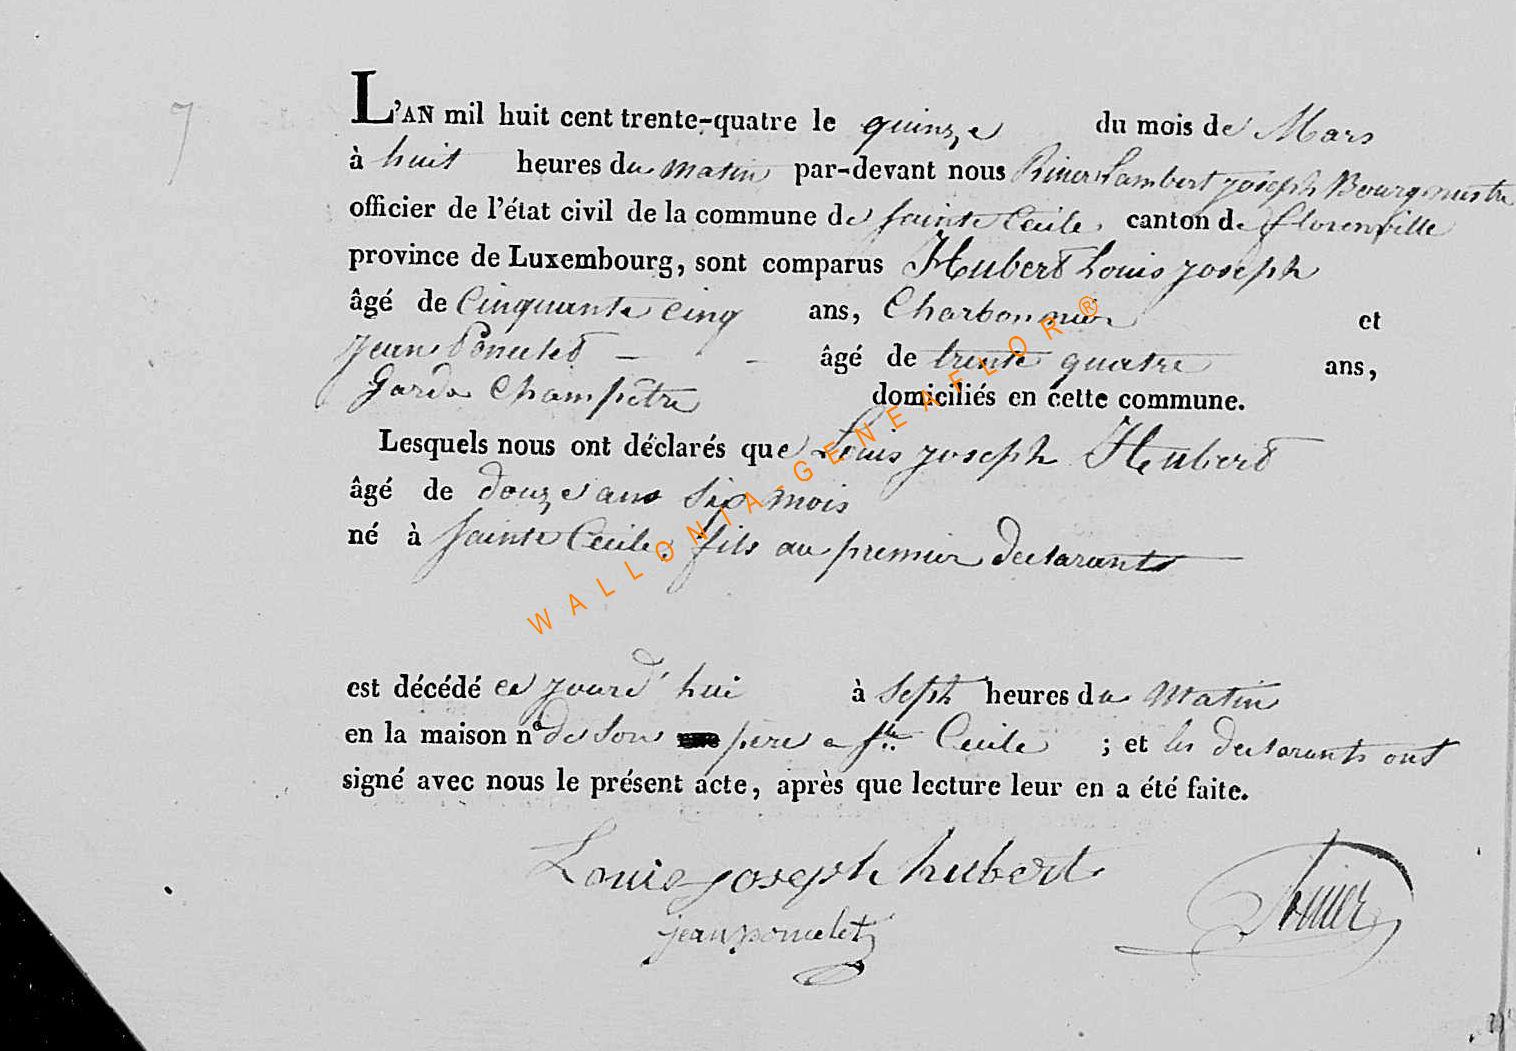 7
L'AN mil huit cent trente-quatre le quinze du mois de Mars
à huit heures du matin par-devant nous Lambert joseph Bourgmestre
officier de l'état civil de la commune de sainte Cecile canton de florenville
province de Luxembourg, sont comparus Hubert Louis joseph
âgé de Cinquante cinq ans, Charbonnier et
Jean âgé de trente quatre ans,
Garde Champêtre domiciliés en cette commune.
Lesquels nous ont déclarés que Louis joseph Hubert
âgé de douze ans six mois
né à sainte Cecile, fils au premier declarants
est décédé ce jourd'hui à Sept heures du Matin
en la maison n° de son père a Ste Cecile ; et les declarants ont
signé avec nous le présent acte, après que lecture leur en a été faite.
Louis joseph hubert
jean
WALLONIA-GENEAFLOR®